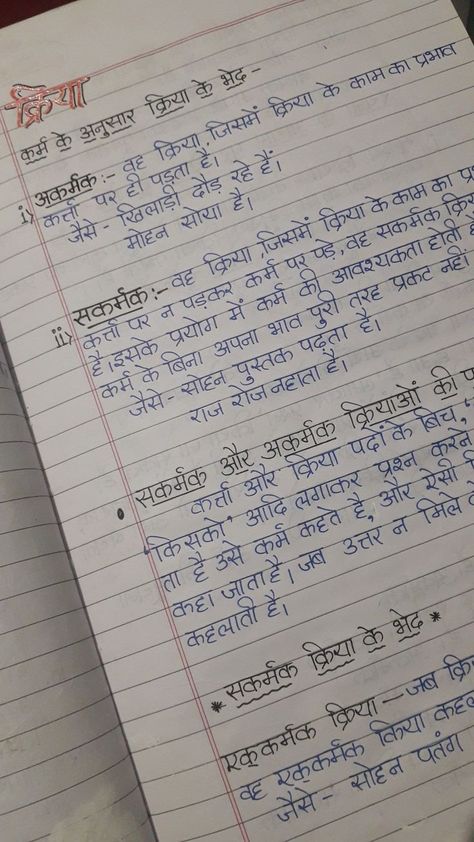 क्रिया
कर्म के अनुसार क्रिया के भेद -
i) अकर्मक :- वह क्रिया, जिसमें क्रिया के काम का प्रभाव
कर्त्ता पर ही पड़ता है।
जैसे - खिलाड़ी दौड़ रहे हैं।
मोहन सोया है।
ii) सकर्मक :- वह क्रिया, जिसमें क्रिया के काम का
कर्त्ता पर न पड़कर कर्म पर पड़े, वह सकर्मक
है। इसके प्रयोग में कर्म की आवश्यकता होती
कर्म के बिना अपना भाव पुरी तरह प्रकट नहीं
जैसे - सोहन पुस्तक पढ़ता है।
राज रोज नहाता है।
• सकर्मक और अकर्मक क्रियाओं की
कर्त्ता और क्रिया पदों के बिच,
'किसको' आदि लगाकर प्रश्न करने
ता है उसे कर्म कहते है, और ऐसी
कहा जाता है। जब उत्तर न मिले
कहलाती है।
* सकर्मक क्रिया के भेद *
एककर्मक क्रिया - जब
वह एककर्मक क्रिया
जैसे - सोहन पतंग